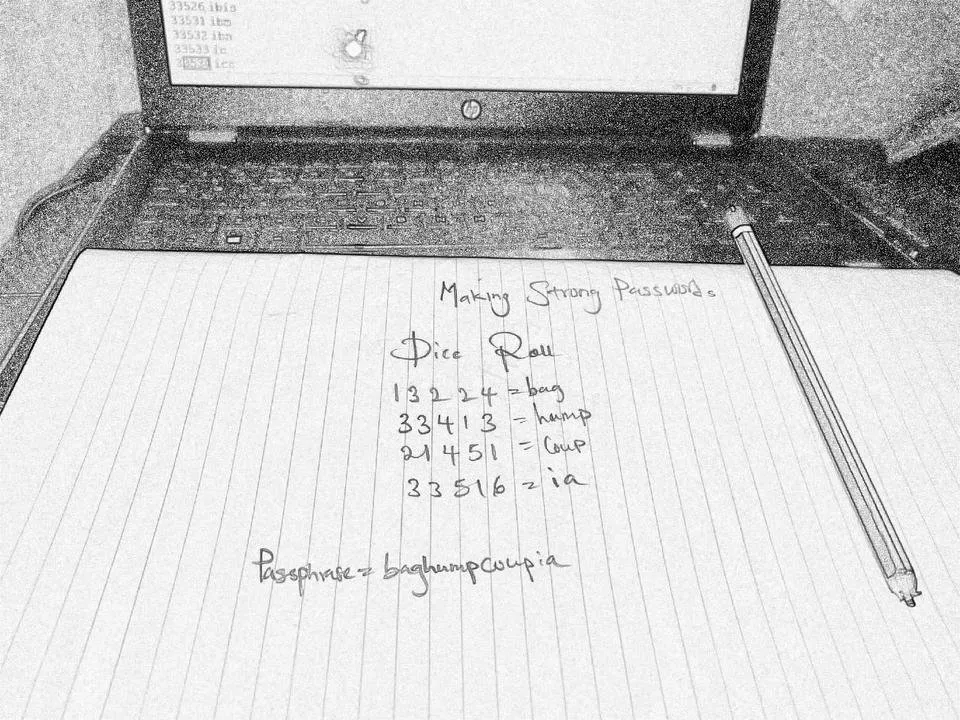 33526 ibis
33531 ibm
33532 ibn
33533 ic
33534 ice
hp
Making Strong Passwords
Dice Roll
13224 = bag
33413 = hump
21451 = coup
33516 = ia
Passphrase = baghumpcoupia